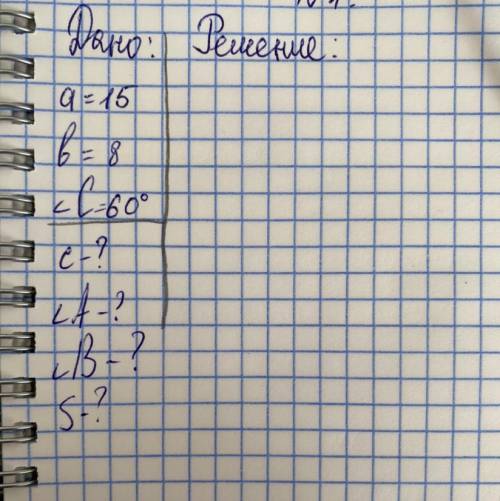 Дано: Решение:
a=15
b=8
∠C=60°
c-?
∠A-?
∠B-?
S-?